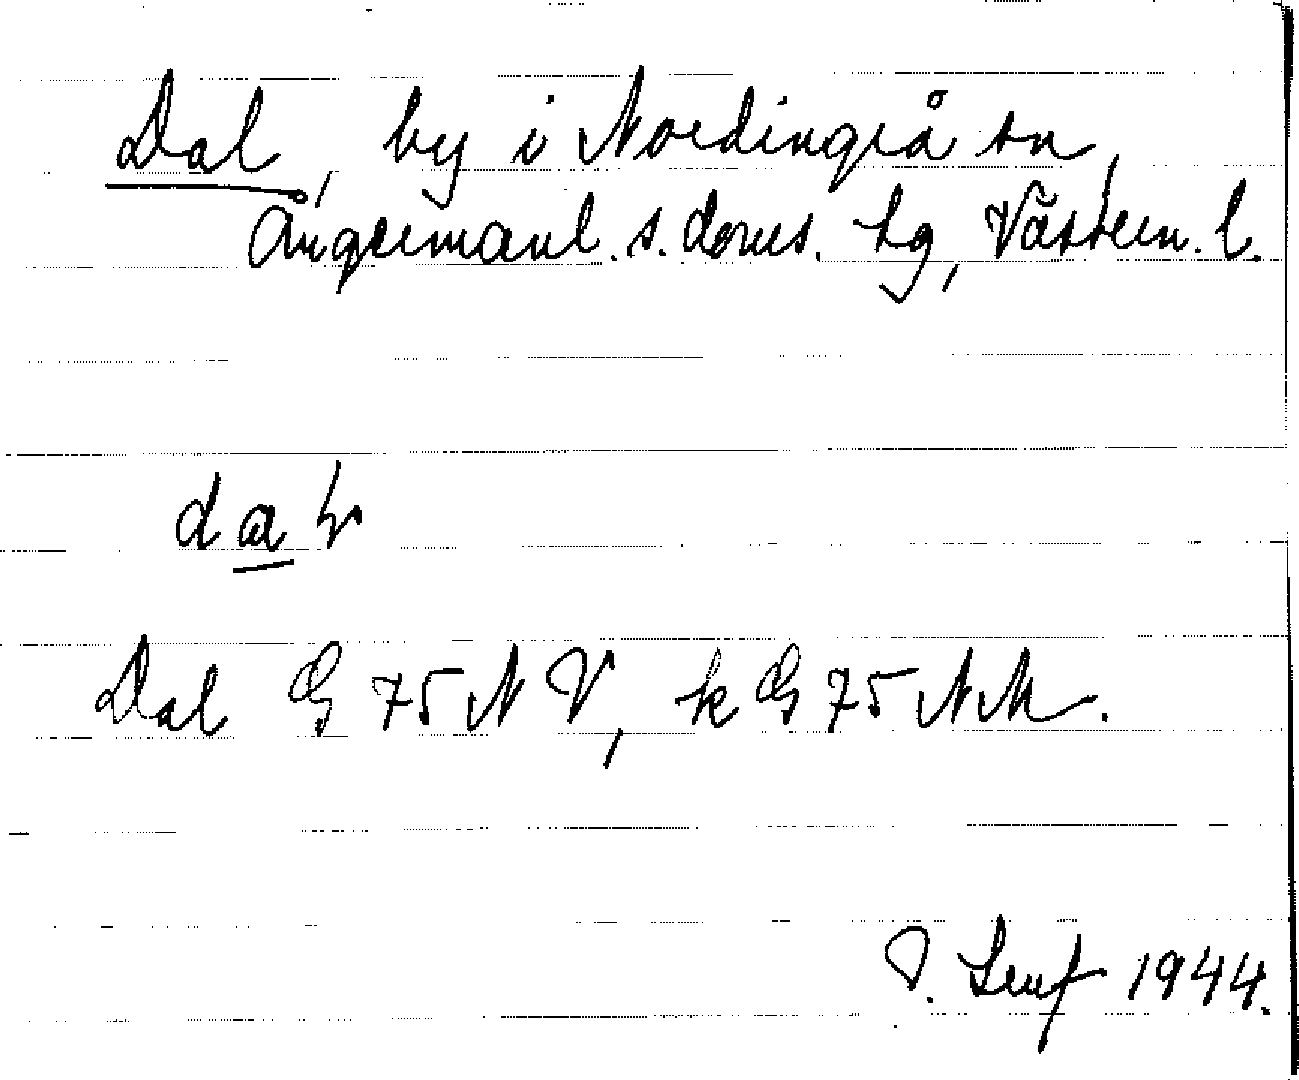 Dal, by i Nordingrå sn,
Ångermanl. s. doms. tg, Västern. l.
dal
Dal G 75 NV, k G 75 NM.
1944.